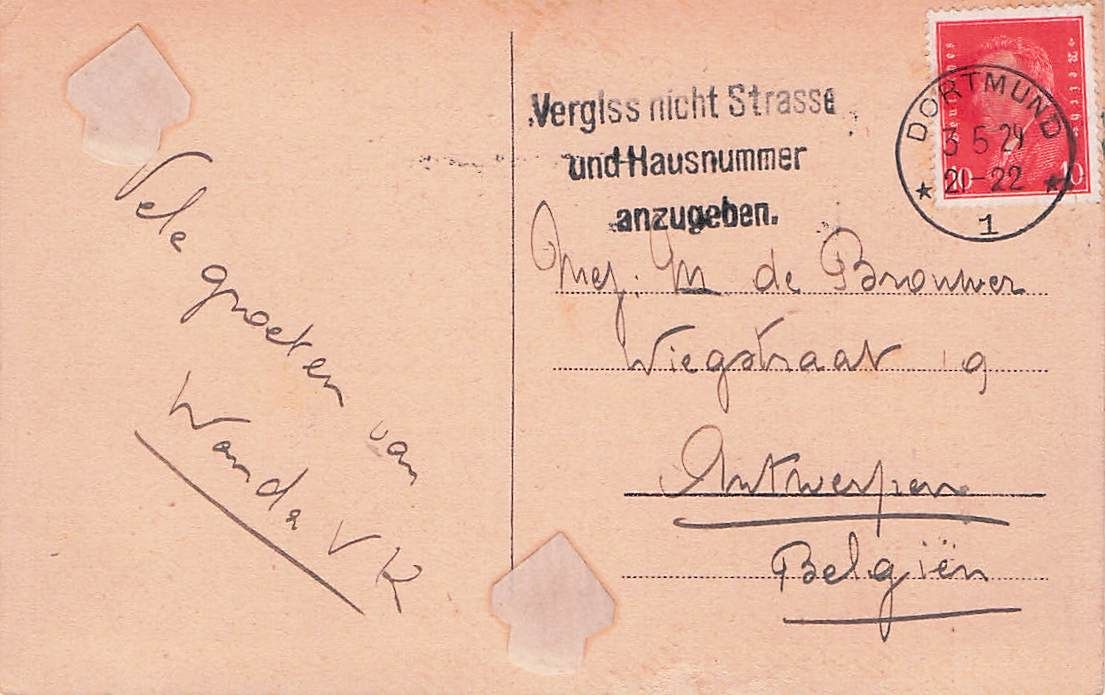 Vele groeten van
Wanda V K
Vergiss nicht Strasse
und Hausnummer
anzugeben.
DORTMUND
3 5 29
20-22
1
Deutsches Reich
10 10
Mej. M de Brouwer
Wiegstraat 19
Antwerpen
Belgiën